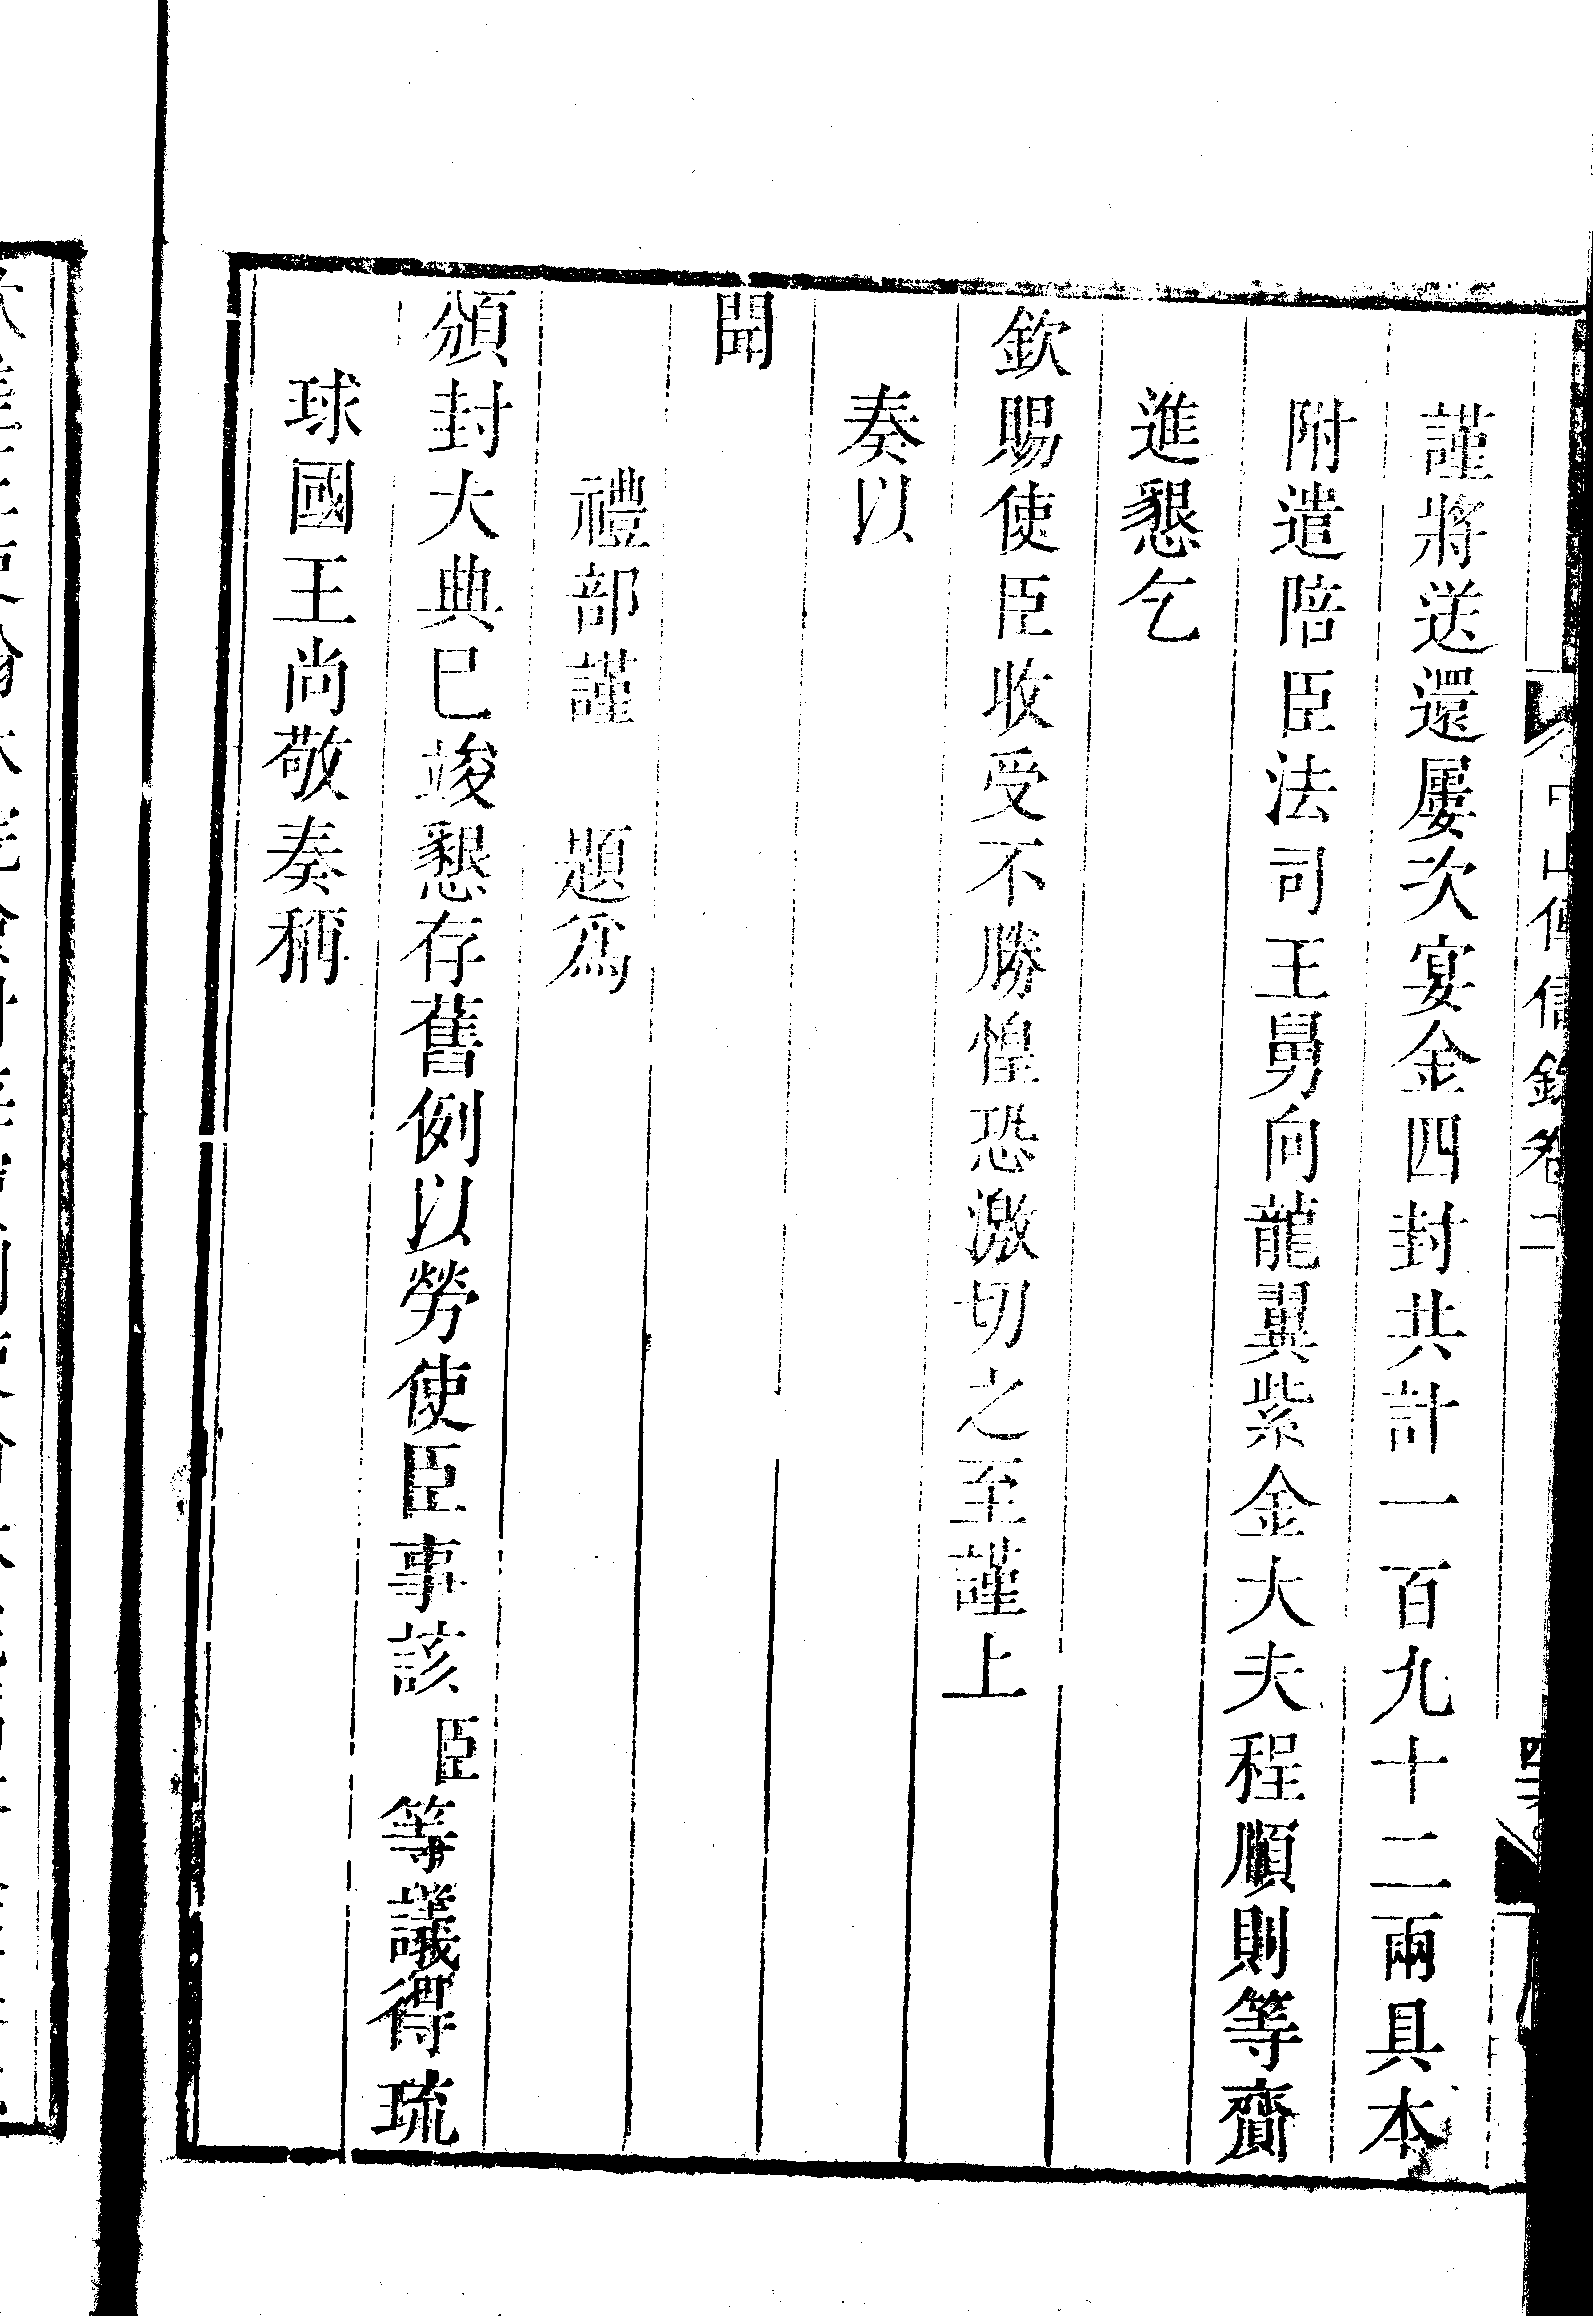 中山傳信錄卷二
謹將送還屢次宴金四封共計一百九十二兩具本
附遣陪臣法司王舅向龍翼紫金大夫程順則等齎
進懇乞
欽賜使臣收受不勝惶恐激切之至謹上
奏以
聞
禮部謹　題爲
頒封大典已竣懇存舊例以勞使臣事該臣等議得琉
球國王尚敬奏稱